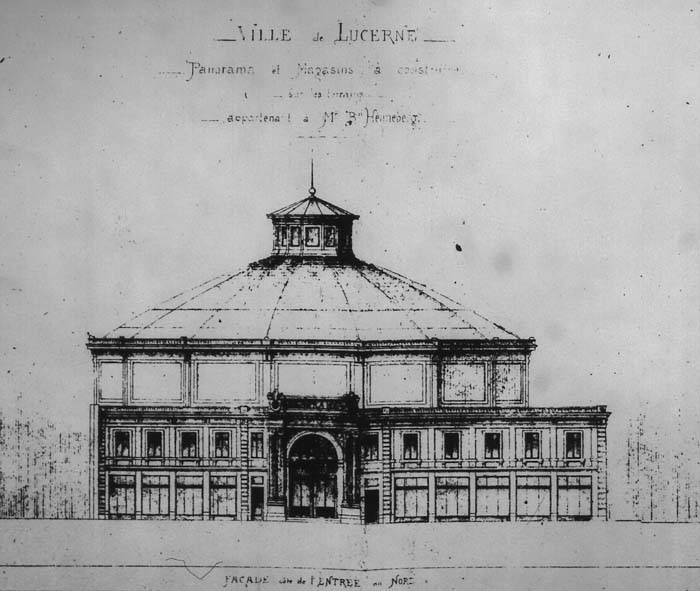 VILLE de LUCERNE
Panorama et Magasins à construire
sur les terrains
appartenant à Mr Bn Henneberg.
FAÇADE côté de l'ENTREE au NORD